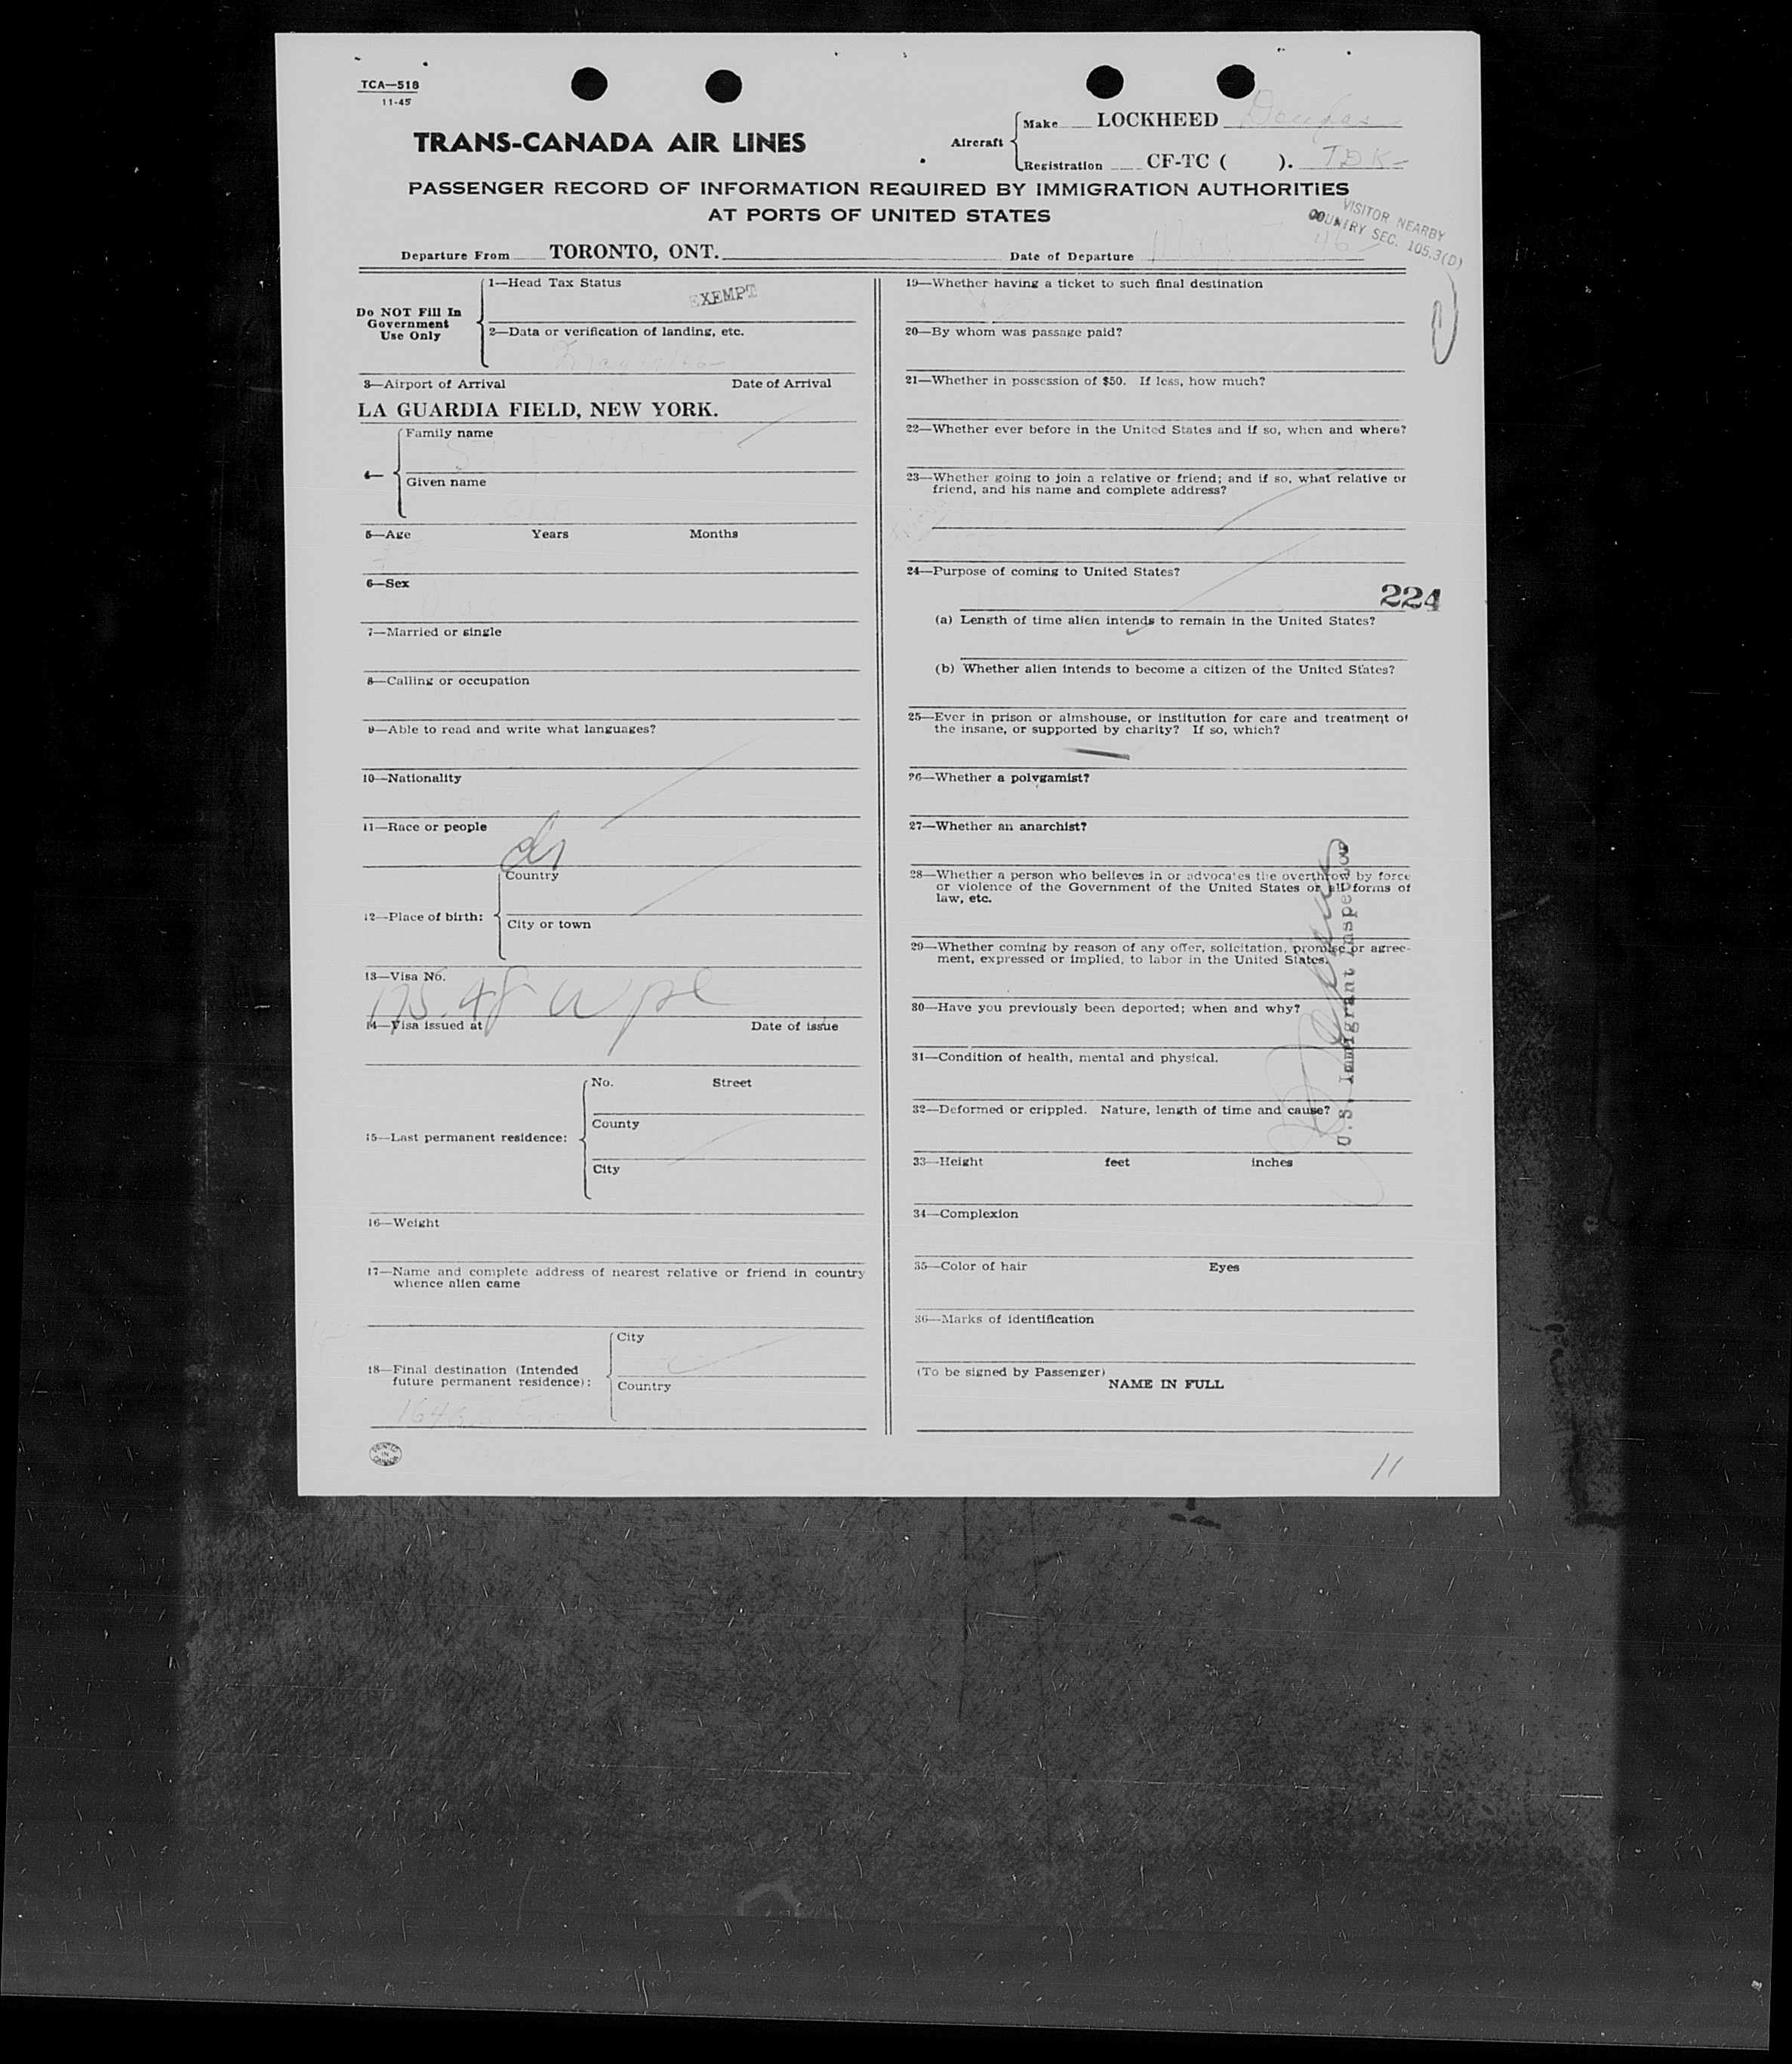 TCA—518
11-45
TRANS-CANADA AIR LINES
Aircraft
Make LOCKHEED Douglas
Registration CF-TC ( ). TDK
PASSENGER RECORD OF INFORMATION REQUIRED BY IMMIGRATION AUTHORITIES
AT PORTS OF UNITED STATES
VISITOR NEARBY
COUNTRY SEC. 105.3(D)
Departure From TORONTO, ONT. Date of Departure
Do NOT Fill In
Government
Use Only
1—Head Tax Status
EXEMPT
2—Data or verification of landing, etc.
3—Airport of Arrival Date of Arrival
LA GUARDIA FIELD, NEW YORK.
4—
Family name
Given name
5—Age Years Months
6—Sex
7—Married or single
8—Calling or occupation
9—Able to read and write what languages?
10—Nationality
11—Race or people
12—Place of birth:
Country
City or town
13—Visa No.
14—Visa issued at Date of issue
15—Last permanent residence:
No. Street
County
City
16—Weight
17—Name and complete address of nearest relative or friend in country
whence alien came
18—Final destination (Intended
future permanent residence):
City
Country
PRINTED
IN
CANADA
19—Whether having a ticket to such final destination
20—By whom was passage paid?
21—Whether in possession of $50. If less, how much?
22—Whether ever before in the United States and if so, when and where?
23—Whether going to join a relative or friend; and if so, what relative or
friend, and his name and complete address?
24—Purpose of coming to United States?
224
(a) Length of time alien intends to remain in the United States?
(b) Whether alien intends to become a citizen of the United States?
25—Ever in prison or almshouse, or institution for care and treatment of
the insane, or supported by charity? If so, which?
26—Whether a polygamist?
27—Whether an anarchist?
28—Whether a person who believes in or advocates the overthrow by force
or violence of the Government of the United States or all forms of
law, etc.
29—Whether coming by reason of any offer, solicitation, promise or agree-
ment, expressed or implied, to labor in the United States.
30—Have you previously been deported; when and why?
31—Condition of health, mental and physical.
32—Deformed or crippled. Nature, length of time and cause?
U.S. Immigrant Inspector
33—Height feet inches
34—Complexion
35—Color of hair Eyes
36—Marks of identification
(To be signed by Passenger)
NAME IN FULL
11